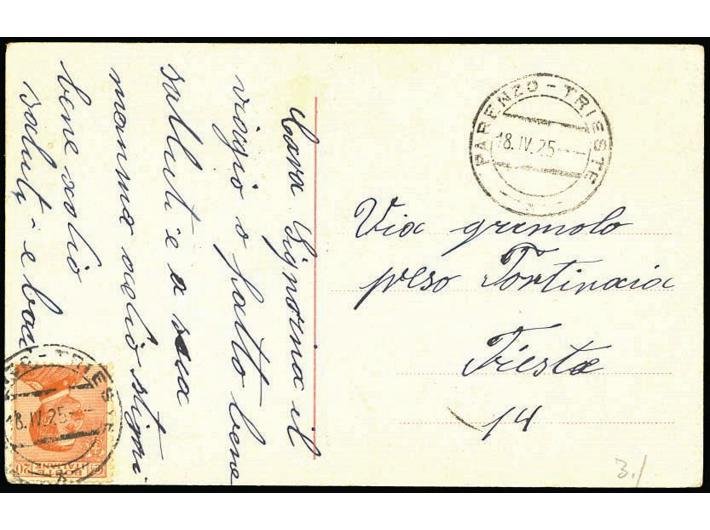 Cara Signorina il
viaggio o fatto bene
salluti e a sua
mamma adio stigni
bene adio
saluti e baci
PARENZO - TRIESTE
18.IV.25
Via gremolo
preso Portinaia
Trieste
14
3./
TRIESTE
18.IV.25